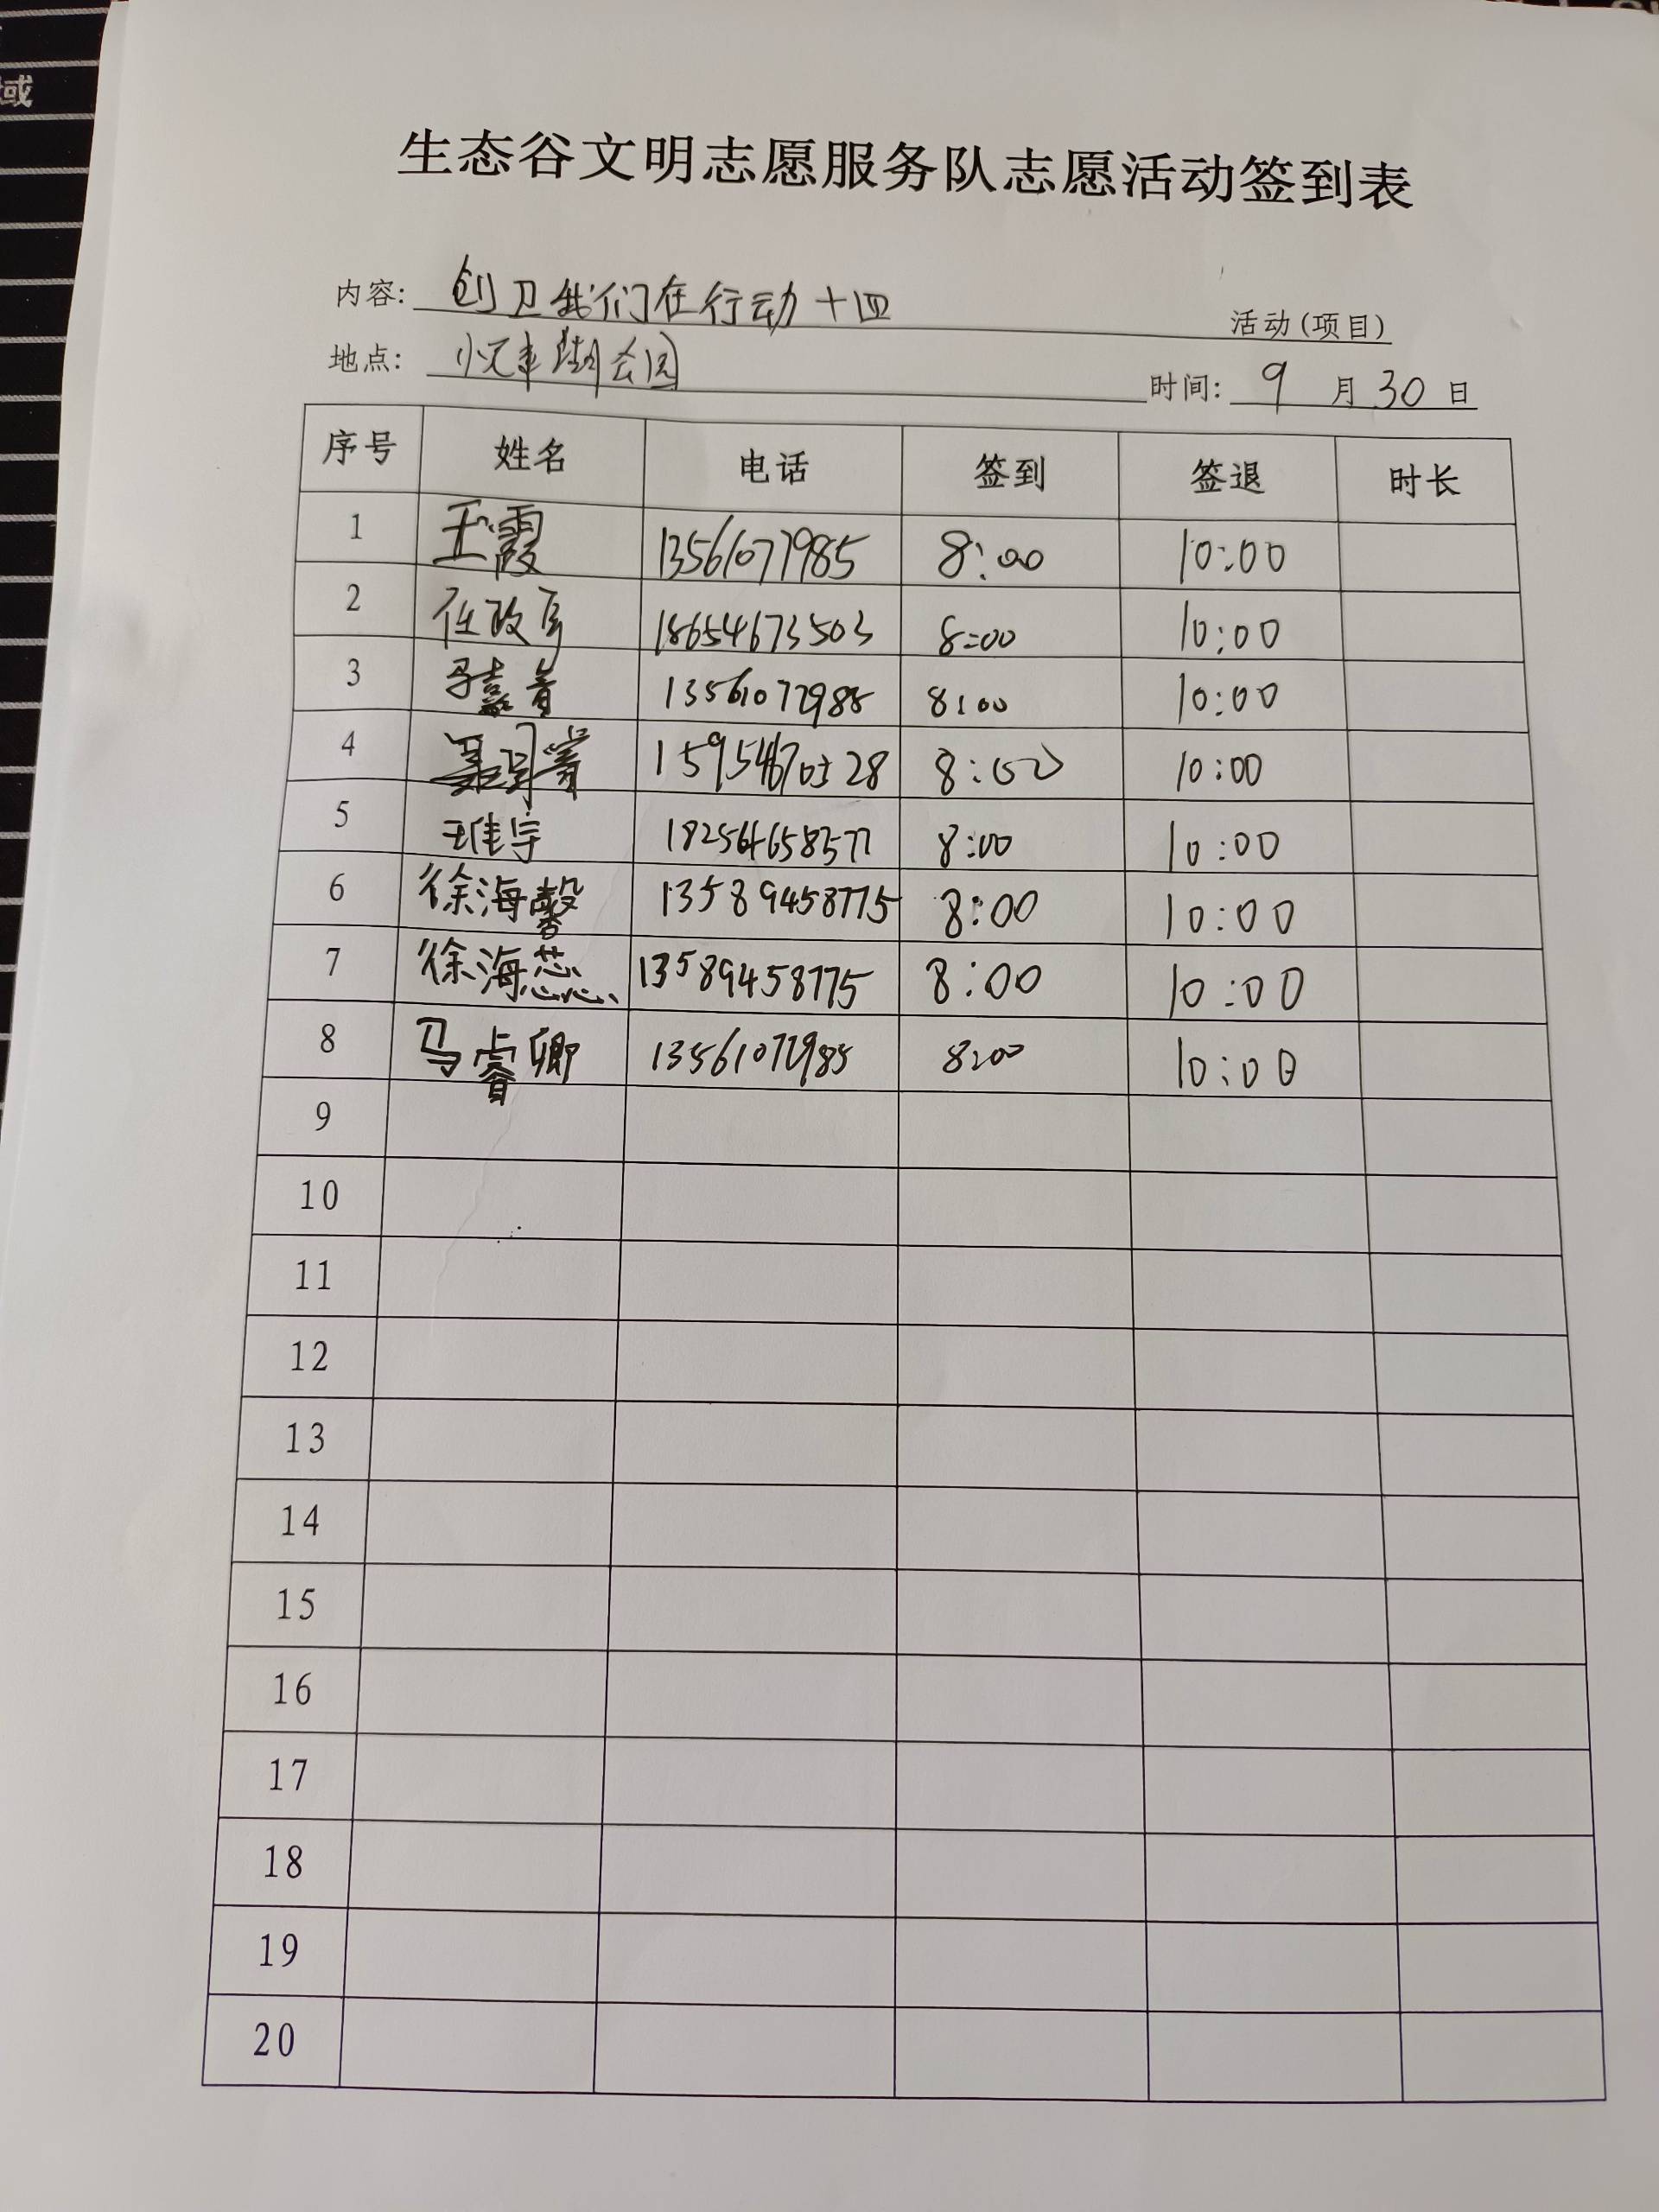 域
生态谷文明志愿服务队志愿活动签到表
内容: 创卫我们在行动十四 活动(项目)
地点: 悦来湖公园 时间: 9月30日
序号 姓名 电话 签到 签退 时长
1 王霞 13561077985 8:00 10:00
2 任政 18654673503 8:00 10:00
3 13561072985 8:00 10:00
4 8:00 10:00
5 王佳宇 18256465857 8:00 10:00
6 徐海馨 13589458775 8:00 10:00
7 徐海蕊 13589458775 8:00 10:00
8 马睿卿 13561072985 8:00 10:00
9
10
11
12
13
14
15
16
17
18
19
20